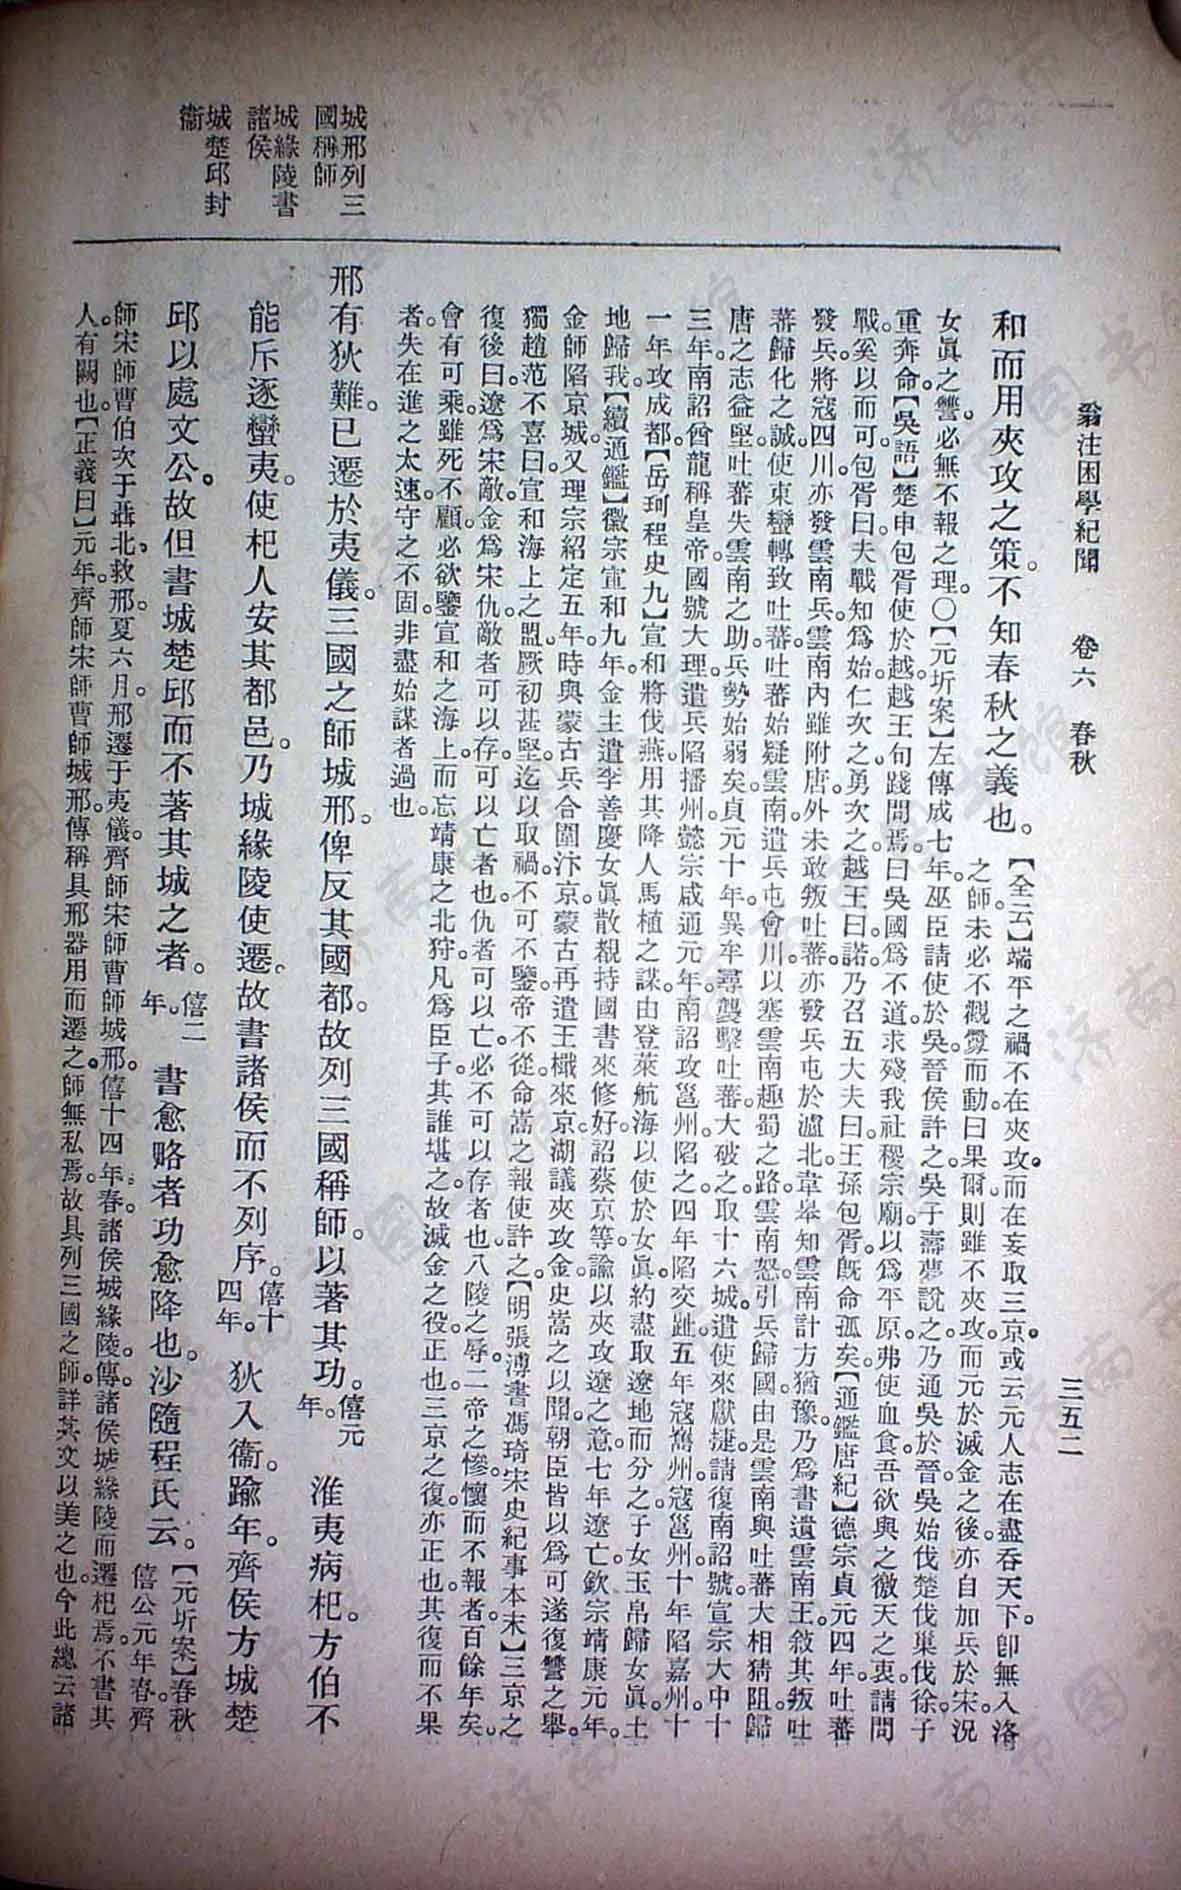 翁注困學紀聞　卷六　春秋
三五二
城邢列三國稱師
城緣陵書諸侯
城楚邱封衞
和而用夾攻之策。不知春秋之義也。【全云】端平之禍不在夾攻。而在妄取三京。或云元人志在盡吞天下。卽無入洛
之師。未必不觀釁而動。曰果爾。則雖不夾攻。而元於滅金之後。亦自加兵於宋。況
女眞之讐。必無不報之理。〇【元圻案】左傳成七年。巫臣請使於吳。晉侯許之。吳子壽夢說之。乃通吳於晉。吳始伐楚伐巢伐徐。子
重奔命。【吳語】楚申包胥使於越。越王句踐問焉。曰吳國爲不道。求殘我社稷宗廟。以爲平原。弗使血食。吾欲與之徼天之衷。請問
戰奚以而可。包胥曰。夫戰知爲始。仁次之。勇次之。越王曰。諾。乃召五大夫曰。王孫包胥。旣命孤矣。【通鑑唐紀】德宗貞元四年。吐蕃
發兵。將寇四川。亦發雲南兵。雲南內雖附唐。外未敢叛吐蕃。亦發兵屯於瀘北。韋皋知雲南計方猶豫。乃爲書遺雲南王。敘其叛吐
蕃歸化之誠。使東蠻轉致吐蕃。吐蕃始疑雲南。遣兵屯會川。以塞雲南趣蜀之路。雲南怒。引兵歸國。由是雲南與吐蕃大相猜阻。歸
唐之志益堅。吐蕃失雲南之助。兵勢始弱矣。貞元十年。異牟尋襲擊吐蕃。大破之。取十六城。遣使來獻捷。請復南詔號。宣宗大中十
三年。南詔酋龍稱皇帝。國號大理。遣兵陷播州。懿宗咸通元年。南詔攻邕州。陷之。四年陷交趾。五年寇巂州。寇邕州。十年陷嘉州。十
一年攻成都。【岳珂桯史九】宣和將伐燕。用其降人馬植之謀。由登萊航海以使於女眞。約盡取遼地而分之。子女玉帛歸女眞。土
地歸我。【續通鑑】徽宗宣和九年。金主遣李善慶女眞散覩持國書來修好。詔蔡京等。諭以夾攻遼之意。七年遼亡。欽宗靖康元年。
金師陷京城。又理宗紹定五年。時與蒙古兵合圍汴京。蒙古再遣王檝來京湖議夾攻金。史嵩之以聞。朝臣皆以爲可遂復讐之舉。
獨趙范不喜曰。宣和海上之盟。厥初甚堅。迄以取禍。不可不鑒。帝不從。命嵩之報使許之。【明張溥書馮琦宋史紀事本末】三京之
復後曰。遼爲宋敵。金爲宋仇。敵者可以存。可以亡者也。仇者可以亡。必不可以存者也。八陵之辱。二帝之慘。懷而不報者。百餘年矣。
會有可乘。雖死不顧。必欲鑒宣和之海上。而忘靖康之北狩。凡爲臣子。其誰堪之。故滅金之役。正也。三京之復。亦正也。其復而不果
者。失在進之太速。守之不固。非盡始謀者過也。
邢有狄難。已遷於夷儀。三國之師城邢。俾反其國都。故列三國稱師。以著其功。僖元年。　淮夷病杞。方伯不
能斥逐蠻夷。使杞人安其都邑。乃城緣陵使遷。故書諸侯而不列序。僖十四年。　狄入衞。踰年。齊侯方城楚
邱以處文公。故但書城楚邱而不著其城之者。僖二年。　書愈略者功愈降也。沙隨程氏云。【元圻案】春秋
僖公元年春。齊
師宋師曹伯次于聶北。救邢。夏六月。邢遷于夷儀。齊師宋師曹師城邢。僖十四年春。諸侯城緣陵。傳。諸侯城緣陵而遷杞焉。不書其
人。有闕也。【正義曰】元年。齊師宋師曹師城邢。傳稱具邢器用而遷之。師無私焉。故具列三國之師。詳其文以美之也。今此總云諸